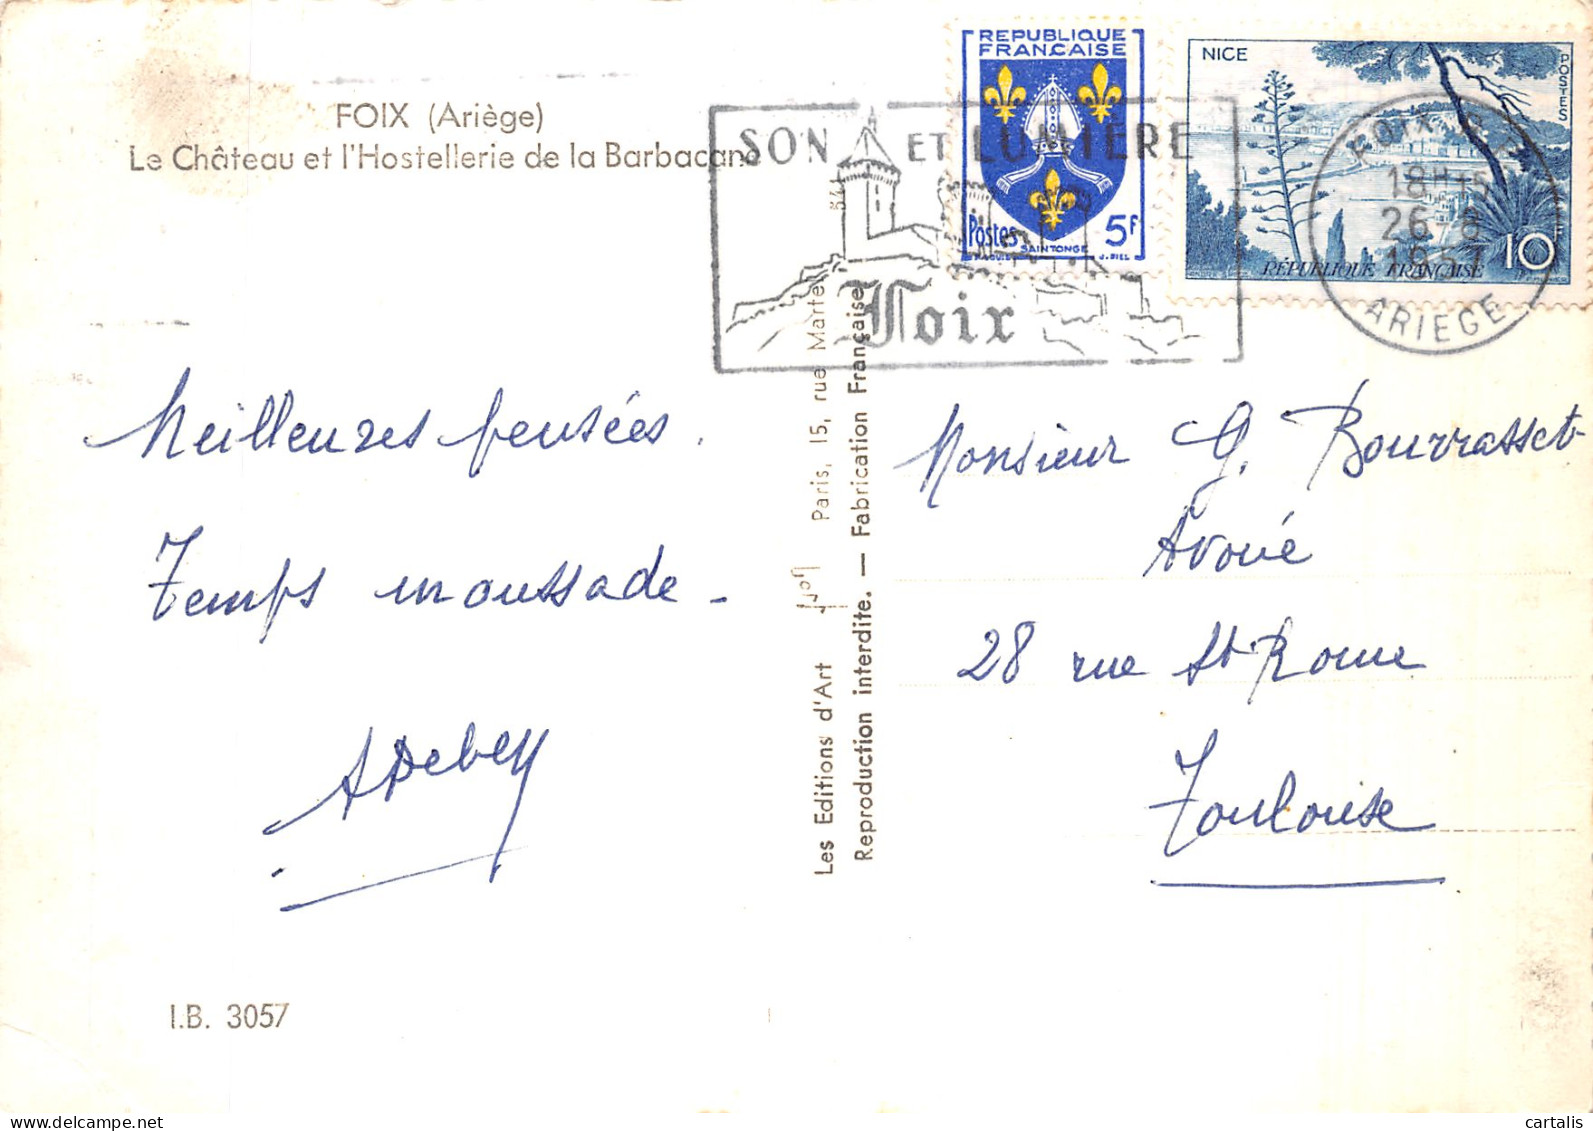 FOIX (Ariège)
Le Château et l'Hostellerie de la Barbacane
REPUBLIQUE
FRANÇAISE
Postes
5F
SAINTONGE
J. PIEL
NICE
POSTES
RÉPUBLIQUE FRANÇAISE
10
SON ET LUMIÈRE
Foix
FOIX
18H15
26-8
1957
ARIEGE
Meilleures pensées.
Temps moussade -
ADebey
Monsieur G. Bourrasset
Avoué
28 rue St Rome
Toulouse
Les Editions d'Art Yvon Paris, 15, rue Martel
Reproduction interdite. — Fabrication Française
I.B. 3057
cartalis